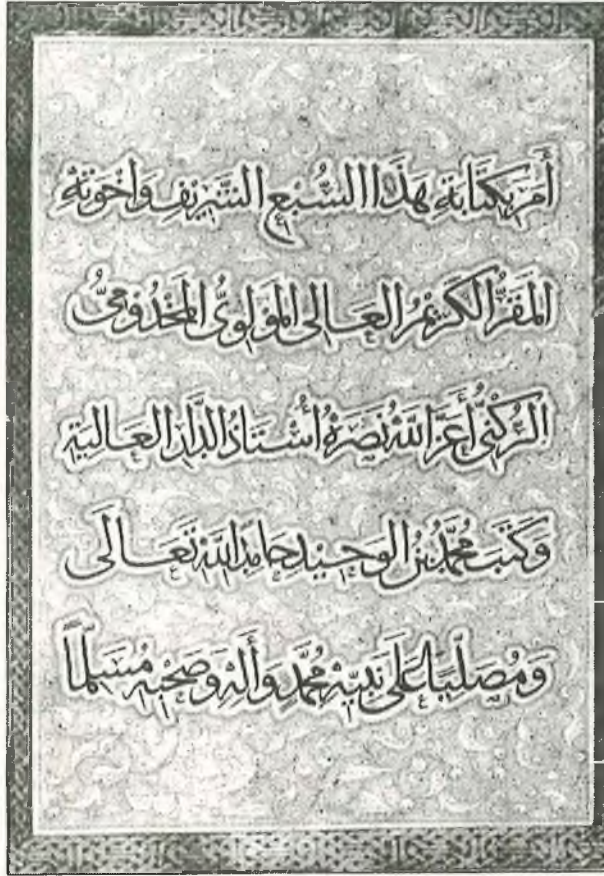 أَمَرَ بِكِتَابَةِ هَذَا السُّبْعِ الشَّرِيفِ وَإِخْوَتِهِ
المَقَرُّ الكَرِيمُ العَالِى المَوْلَوِىُّ المَخْدُومِىُّ
الرُّكْنِىُّ أَعَزَّ اللَّهُ نَصْرَهُ أُسْتَاذُ الدَّارِ العَالِيَةِ
وَكَتَبَ مُحَمَّدُ بْنُ الوَحِيدِ حَامِدًا لِلَّهِ تَعَالَى
وَمُصَلِّيًا عَلَى نَبِيِّهِ مُحَمَّدٍ وَأَلِهِ وَصَحْبِهِ مُسَلِّمًا